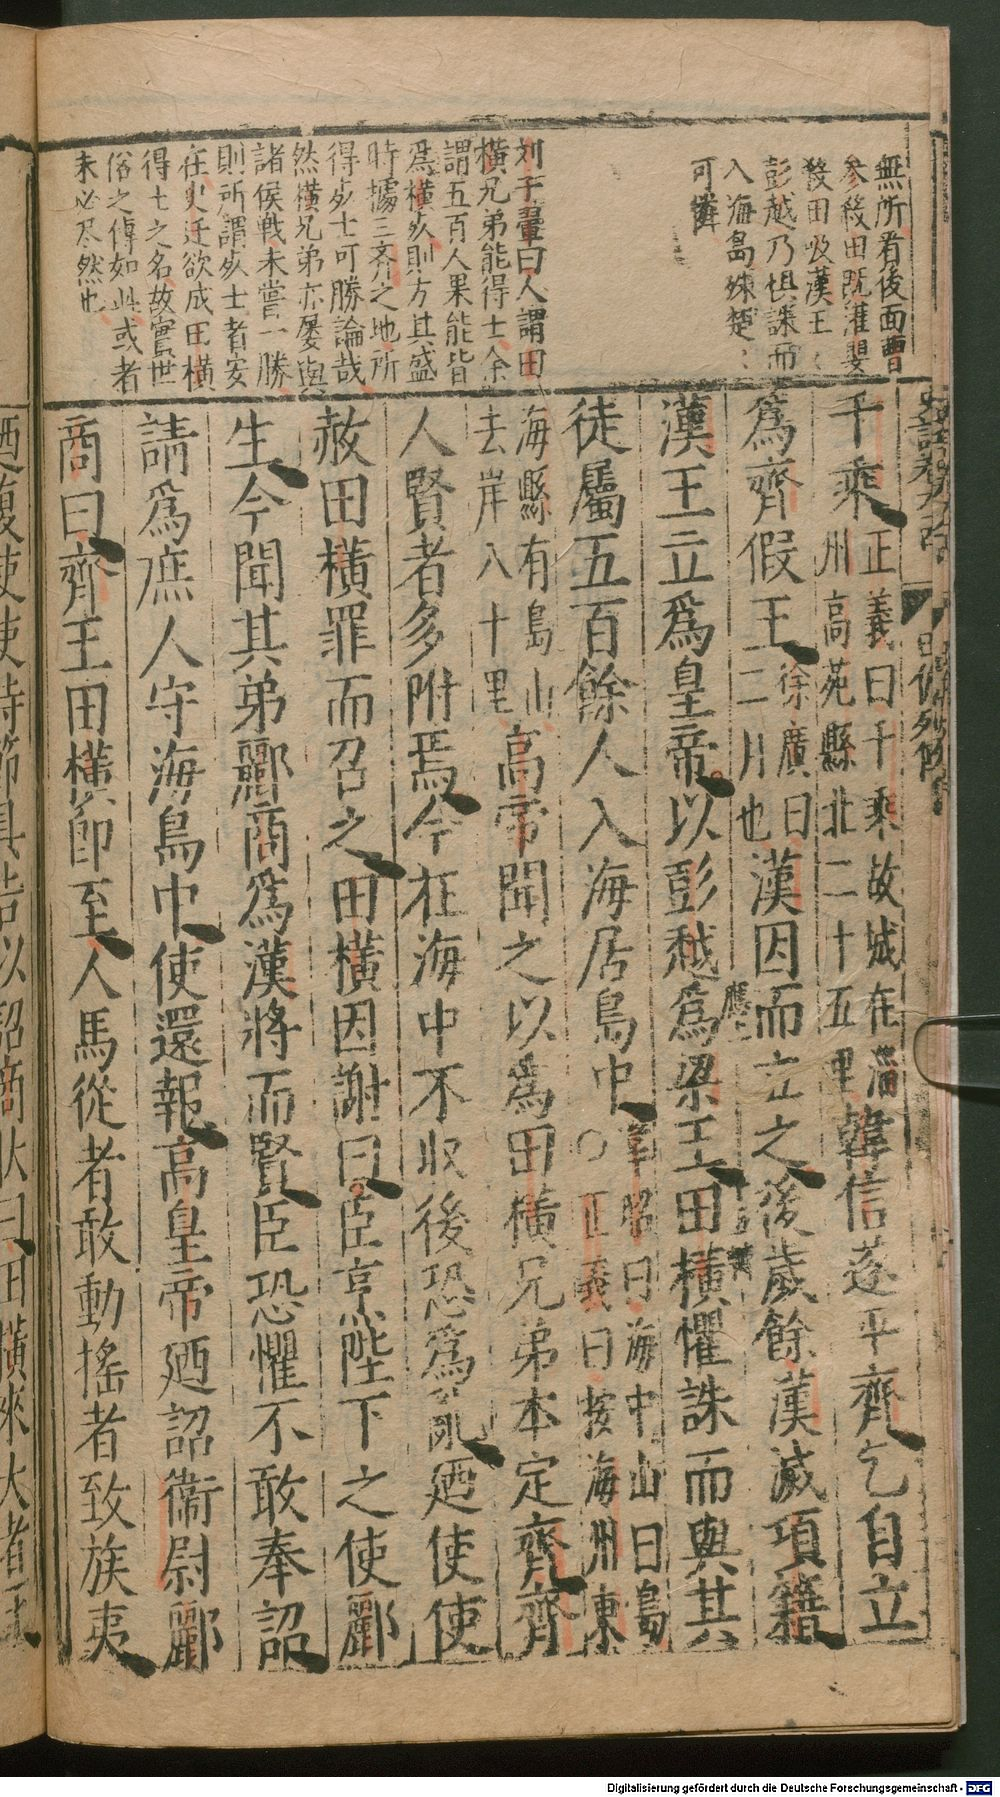 無所看後面曹
參殺田既灌嬰
殺田吸漢王
彭越乃惧誅而
入海島殊楚〻
可憐
刘子翬曰人謂田
橫兄弟能得士余
謂五百人果能皆
為橫死則方其盛
時據三齊之地所
得死士可勝論哉
然橫兄弟亦屡與
諸侯戰未嘗一勝
則所謂死士者安
在史迁欲成田橫
得士之名故實世
俗之傳如此或者
未必尽然也
千乘正義曰千乘故城在淄州高苑縣北二十五里韓信遂平齊乞自立
為齊假王徐廣曰二月也漢因而立之後歲餘漢滅項籍
漢王立為皇帝以彭越為梁王田橫懼誅而與其
徒屬五百餘人入海居島中韋昭曰海中山曰島〇正義曰按海州東
海縣有島山去岸八十里高帝聞之以為田橫兄弟本定齊齊
人賢者多附焉今在海中不收後恐為亂廼使使
赦田橫罪而召之田橫因謝曰臣烹陛下之使酈
生今聞其弟酈商為漢將而賢臣恐懼不敢奉詔
請為庶人守海島中使還報高皇帝廼詔衞尉酈
商曰齊王田橫即至人馬從者敢動搖者致族夷
廼復使使持節具告以詔商狀曰田橫來大者王
Digitalisierung gefördert durch die Deutsche Forschungsgemeinschaft - DFG